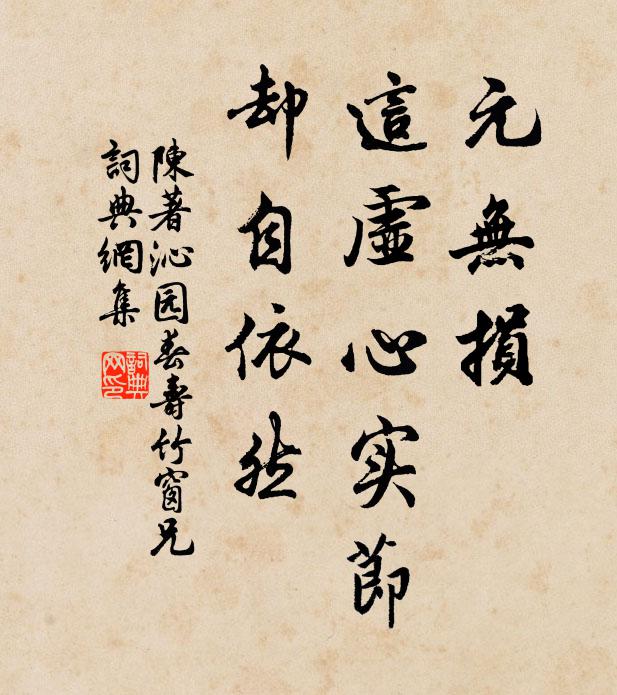 元無損
這虛心实節
却自依然
陳著沁园春壽竹窗兄
詞典網集
詞典網印